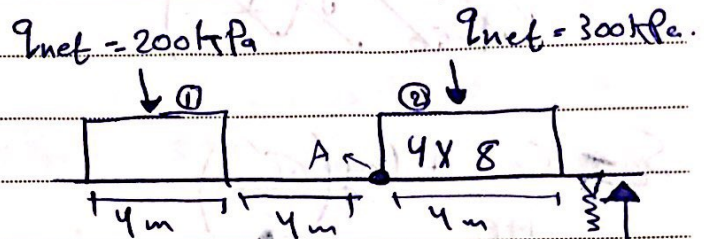 qnet = 200kPa qnet = 300kPa.
① ②
A 4 X 8
4m 4m 4m